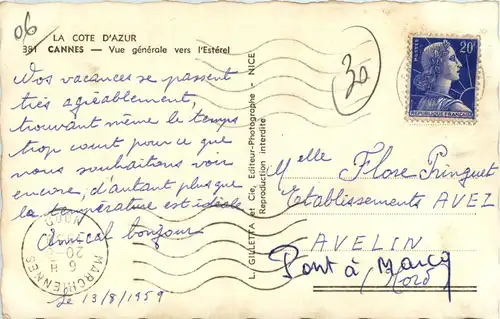 06
LA COTE D'AZUR
381 CANNES — Vue générale vers l'Estérel
Nos vacances se passent
très agréablement,
trouvant même le temps
trop court pour ce que
nous souhaitons voir
encore, d'autant plus que
la température est idéale
Amical bonjour
Le 13/8/1959
L. GILLETTA et Cie, Editeur-Photographe - NICE
Reproduction interdite
30
POSTES
20F
REPUBLIQUE FRANÇAISE
Melle Flore Pringuet
Etablissements AVEZ
AVELIN
Pont à Marcq
Nord
MARCHIENNES